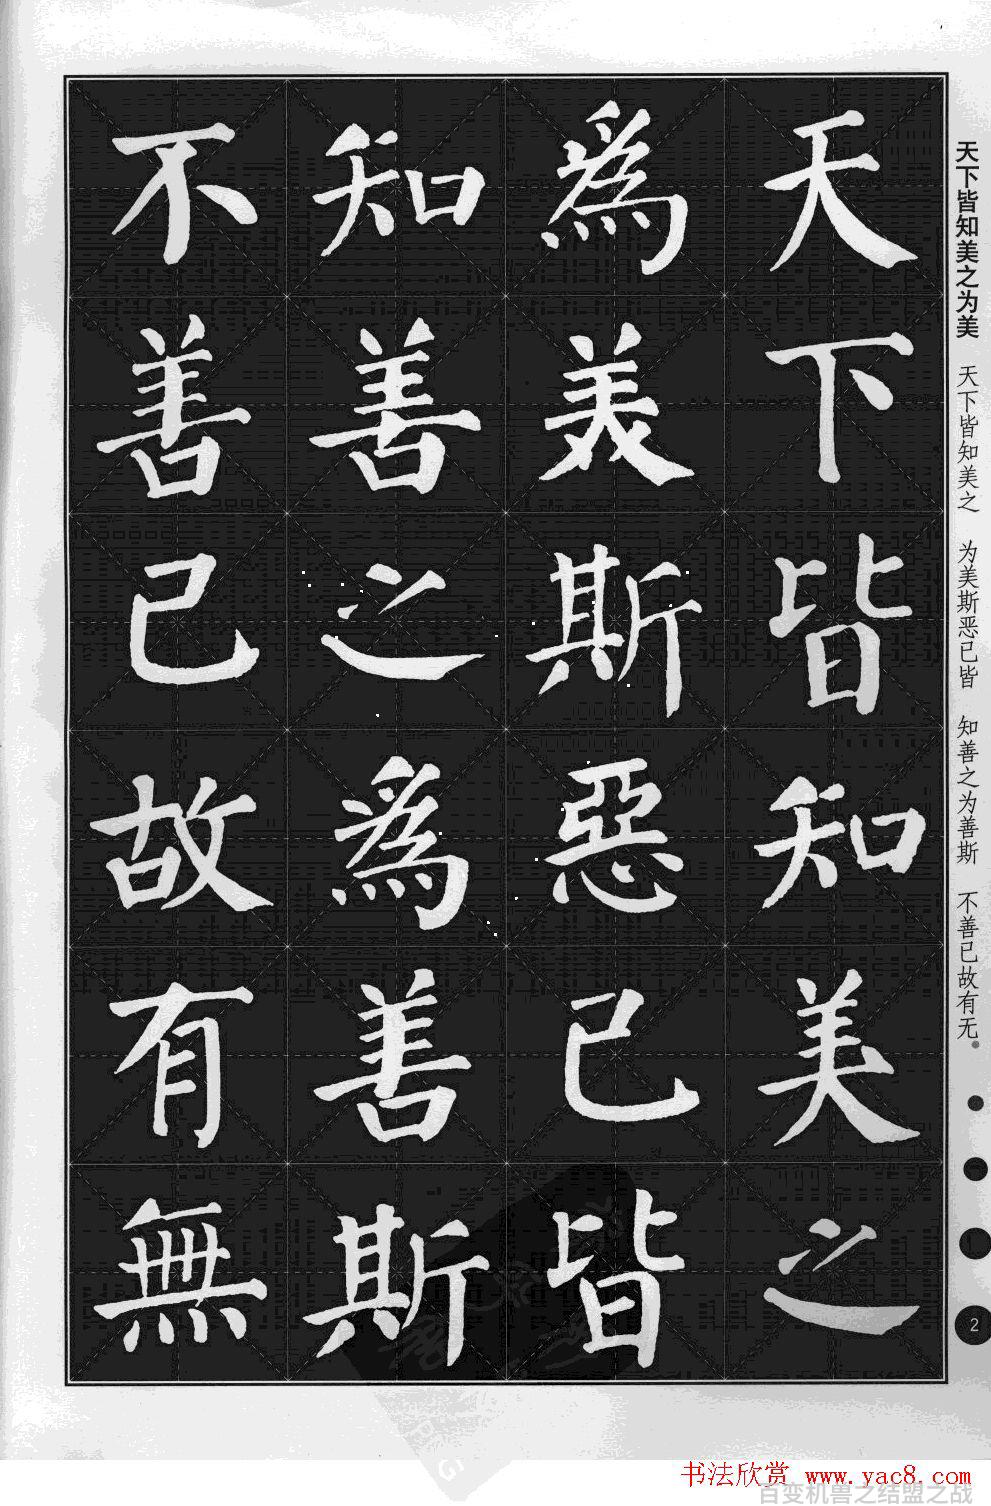 天下皆知美之
為美斯惡已皆
知善之為善斯
不善已故有無
天下皆知美之为美 天下皆知美之 为美斯恶已皆 知善之为善斯 不善已故有无
2
书法欣赏 www.yac8.com
百变机兽之结盟之战